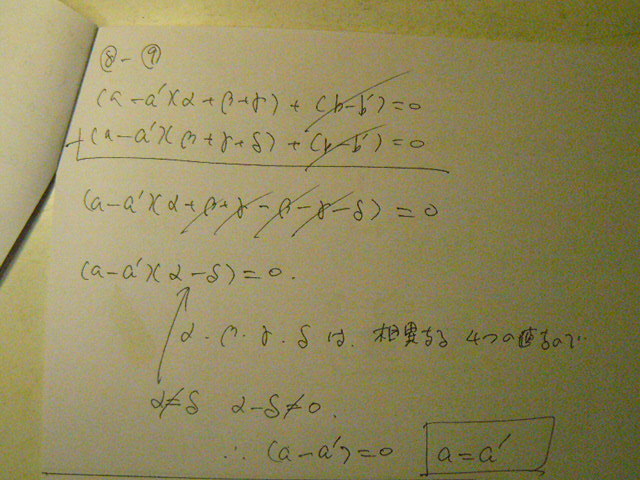 ⑧-⑨
(a-a')(α+β+γ)+(b-b')=0
+(a-a')(β+γ+δ)+(b-b')=0
(a-a')(α+β+γ-β-γ-δ)=0
(a-a')(α-δ)=0.
α.β.γ.δは、相異なる4つの値なので
α≠δ α-δ≠0.
∴(a-a')=0 a=a'